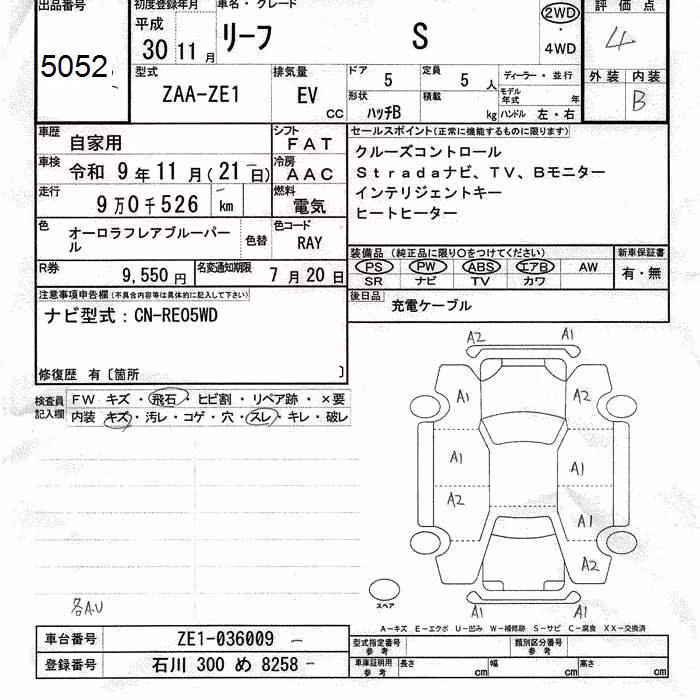 出品番号
5052
初度登録年月
平成
30 11月
車名・グレード
リーフ S
2WD
・
4WD
評価点
4
外装 内装
B
型式
ZAA-ZE1
排気量
EV
cc
ドア
5
定員
5人
形状
ハッチB
積載
kg
ディーラー・並行
モデル年式 年
ハンドル 左・右
車歴
自家用
シフト
FAT
車検
令和 9年11月(21日)
冷房
AAC
走行
9万0千526 km
燃料
電気
色
オーロラフレアブルーパール
色替
色コード
RAY
R券
9,550円
名変通知期限
7月20日
セールスポイント(正常に機能するものに限ります)
クルーズコントロール
Stradaナビ、TV、Bモニター
インテリジェントキー
ヒートヒーター
装備品(純正品に限り○をつけてください)
PS PW ABS エアB AW
SR ナビ TV カワ
新車保証書
有・無
後日品
充電ケーブル
注意事項申告欄(不具合内容等は具体的に記入して下さい)
ナビ型式:CN-RE05WD
修復歴 有〔箇所 〕
検査員記入欄
FW キズ・飛石・ヒビ割・リペア跡・×要
内装 キズ・汚レ・コゲ・穴・スレ・キレ・破レ
A2 A1
A1 A2
A1 A1
A2 A1
A2
A1 A1
各A.U
スペア
A-キズ E-エクボ U-凹み W-補修跡 S-サビ C-腐食 XX-交換済
車台番号
ZE1-036009
登録番号
石川 300 め 8258
型式指定番号
参考
類別区分番号
参考
車庫証明用
参考
長さ cm
幅 cm
高さ cm